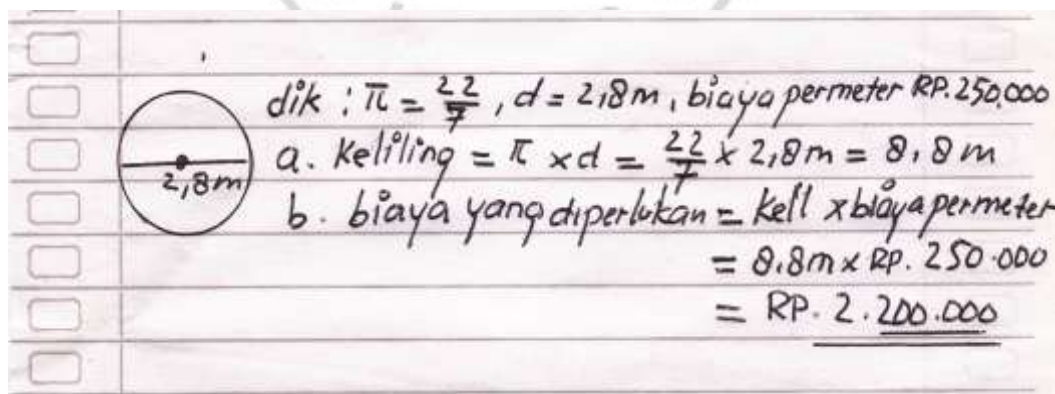 dik : π = 22/7, d = 2,8m, biaya permeter RP. 250.000
2,8m
a. Keliling = π x d = 22/7 x 2,8m = 8,8 m
b. biaya yang diperlukan = kell x biaya permeter
= 8.8m x RP. 250.000
= RP. 2.200.000